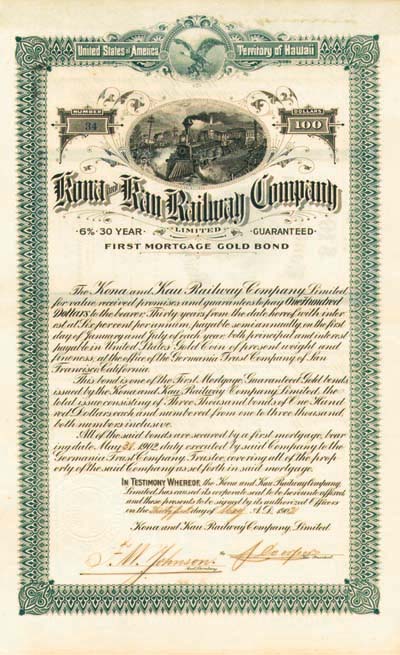 United States of America Territory of Hawaii
NUMBER DOLLARS
34 100
Kona and Kau Railway Company
LIMITED
6% 30 YEAR GUARANTEED
FIRST MORTGAGE GOLD BOND
The Kona and Kau Railway Company Limited
for value received promises and guarantees to pay One Hundred
Dollars to the bearer, Thirty years from the date hereof with inter-
est at Six per cent per annum, payable semiannually, on the first
day of January and July of each year, both principal and interest
payable in United States Gold Coin of present weight and
fineness, at the office of the Germania Trust Company of San
Francisco California.
This bond is one of the First Mortgage Guaranteed Gold bonds
issued by the Kona and Kau Railway Company Limited, the
total issue consisting of Three Thousand bonds of One Hund-
red Dollars each and numbered from one to three thousand,
both numbers inclusive.
All of the said bonds are secured by a first mortgage, bear-
ing date May 31 1902, duly executed by said Company to the
Germania Trust Company, Trustee, covering all of the prop-
erty of the said Company as set forth in said mortgage.
IN TESTIMONY WHEREOF, the Kona and Kau Railway Company
Limited, has caused its corporate seal to be hereunto affixed
and these presents to be signed by its authorized Officers
on the Thirty first day of May A.D. 1902
Kona and Kau Railway Company, Limited
F. M. Johnson. J. Cowper